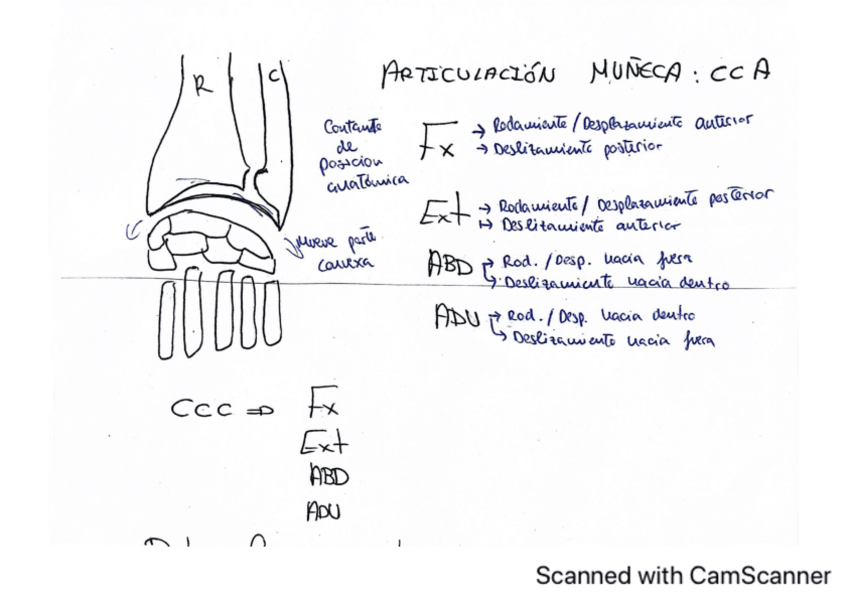 ARTICULACIÓN MUÑECA : CCA
R
C
Contando
de
posicion
anatómica
Fx → Rodamiento / Desplazamiento anterior
→ Deslizamiento posterior
Ext → Rodamiento / Desplazamiento posterior
↦ Deslizamiento anterior
Mueve parte
convexa
ABD → Rod. / Desp. hacia fuera
↳ Deslizamiento hacia dentro
ADU → Rod. / Desp. hacia dentro
↳ Deslizamiento hacia fuera
CCC ⇒ Fx
Ext
ABD
ADU
Scanned with CamScanner